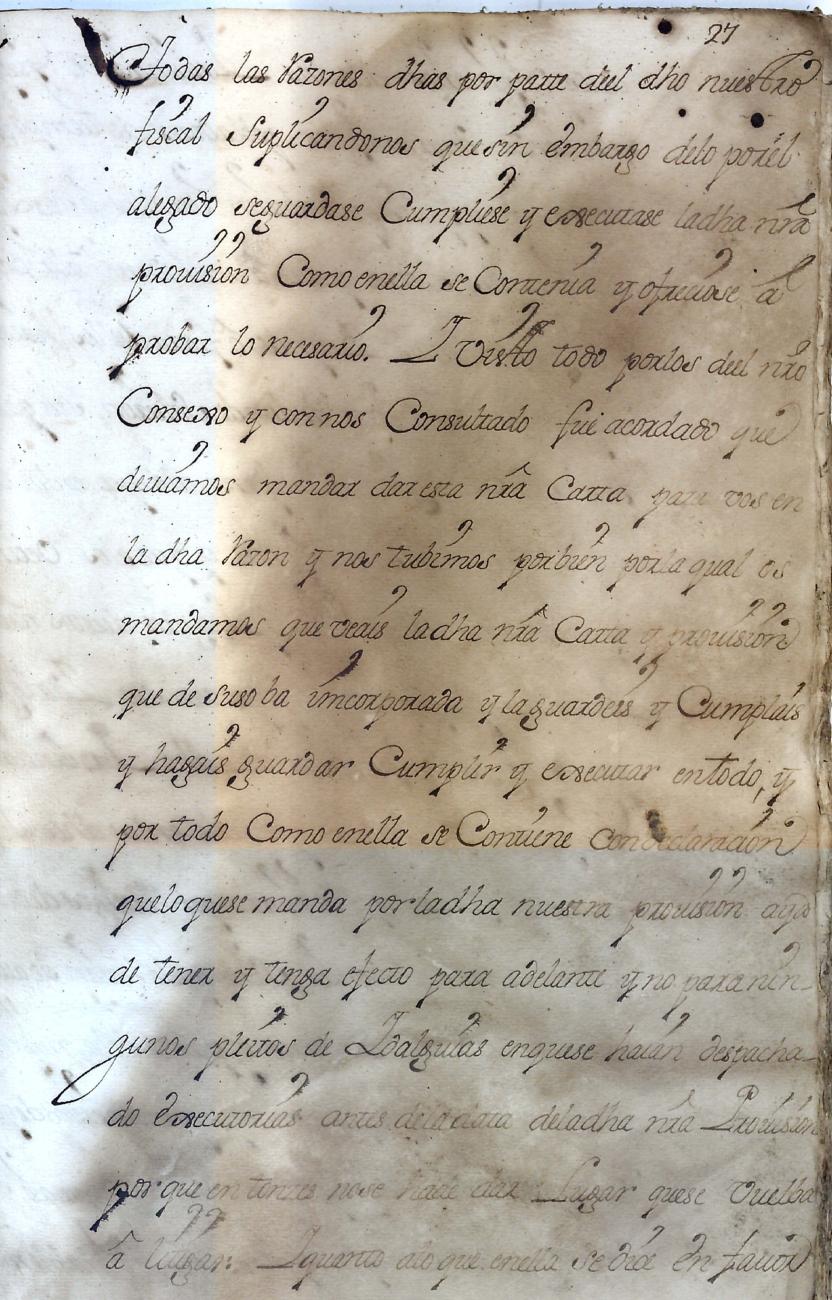 27
todas las Razones dhas por parte deel dho nuestro
fiscal Suplicandonos que sin embargo delo porél
alegado seguardase Cumpliese y executase ladha nrã
provision Como enella se Contenia y ofreciose à
probar lo necesario. I Vistto todo porlos deel nrõ
Consexo y con nos Consultado fue acordado que
deviamos mandar dar esta nrã Carta para vos en
la dha Razon y nos tubimos por bien por la qual os
mandamos que veais ladha nrã Carta y provision
que de suso ba imcorporada y la guardeis y Cumplais
y hagais guardar Cumplir y executar en todo, y
por todo Como enella se Contiene con declaracion
quelo quese manda por ladha nuestra provision aya
de tener y tenga efecto para adelante y no para nin-
gunos pleitos de Idalguias enquese haian despacha-
do executorias antes dela data deladha nrã Provision
por que entonzes nose hade dar Lugar quese vuelba
â litigar: I quanto alo que enella se diz en favor